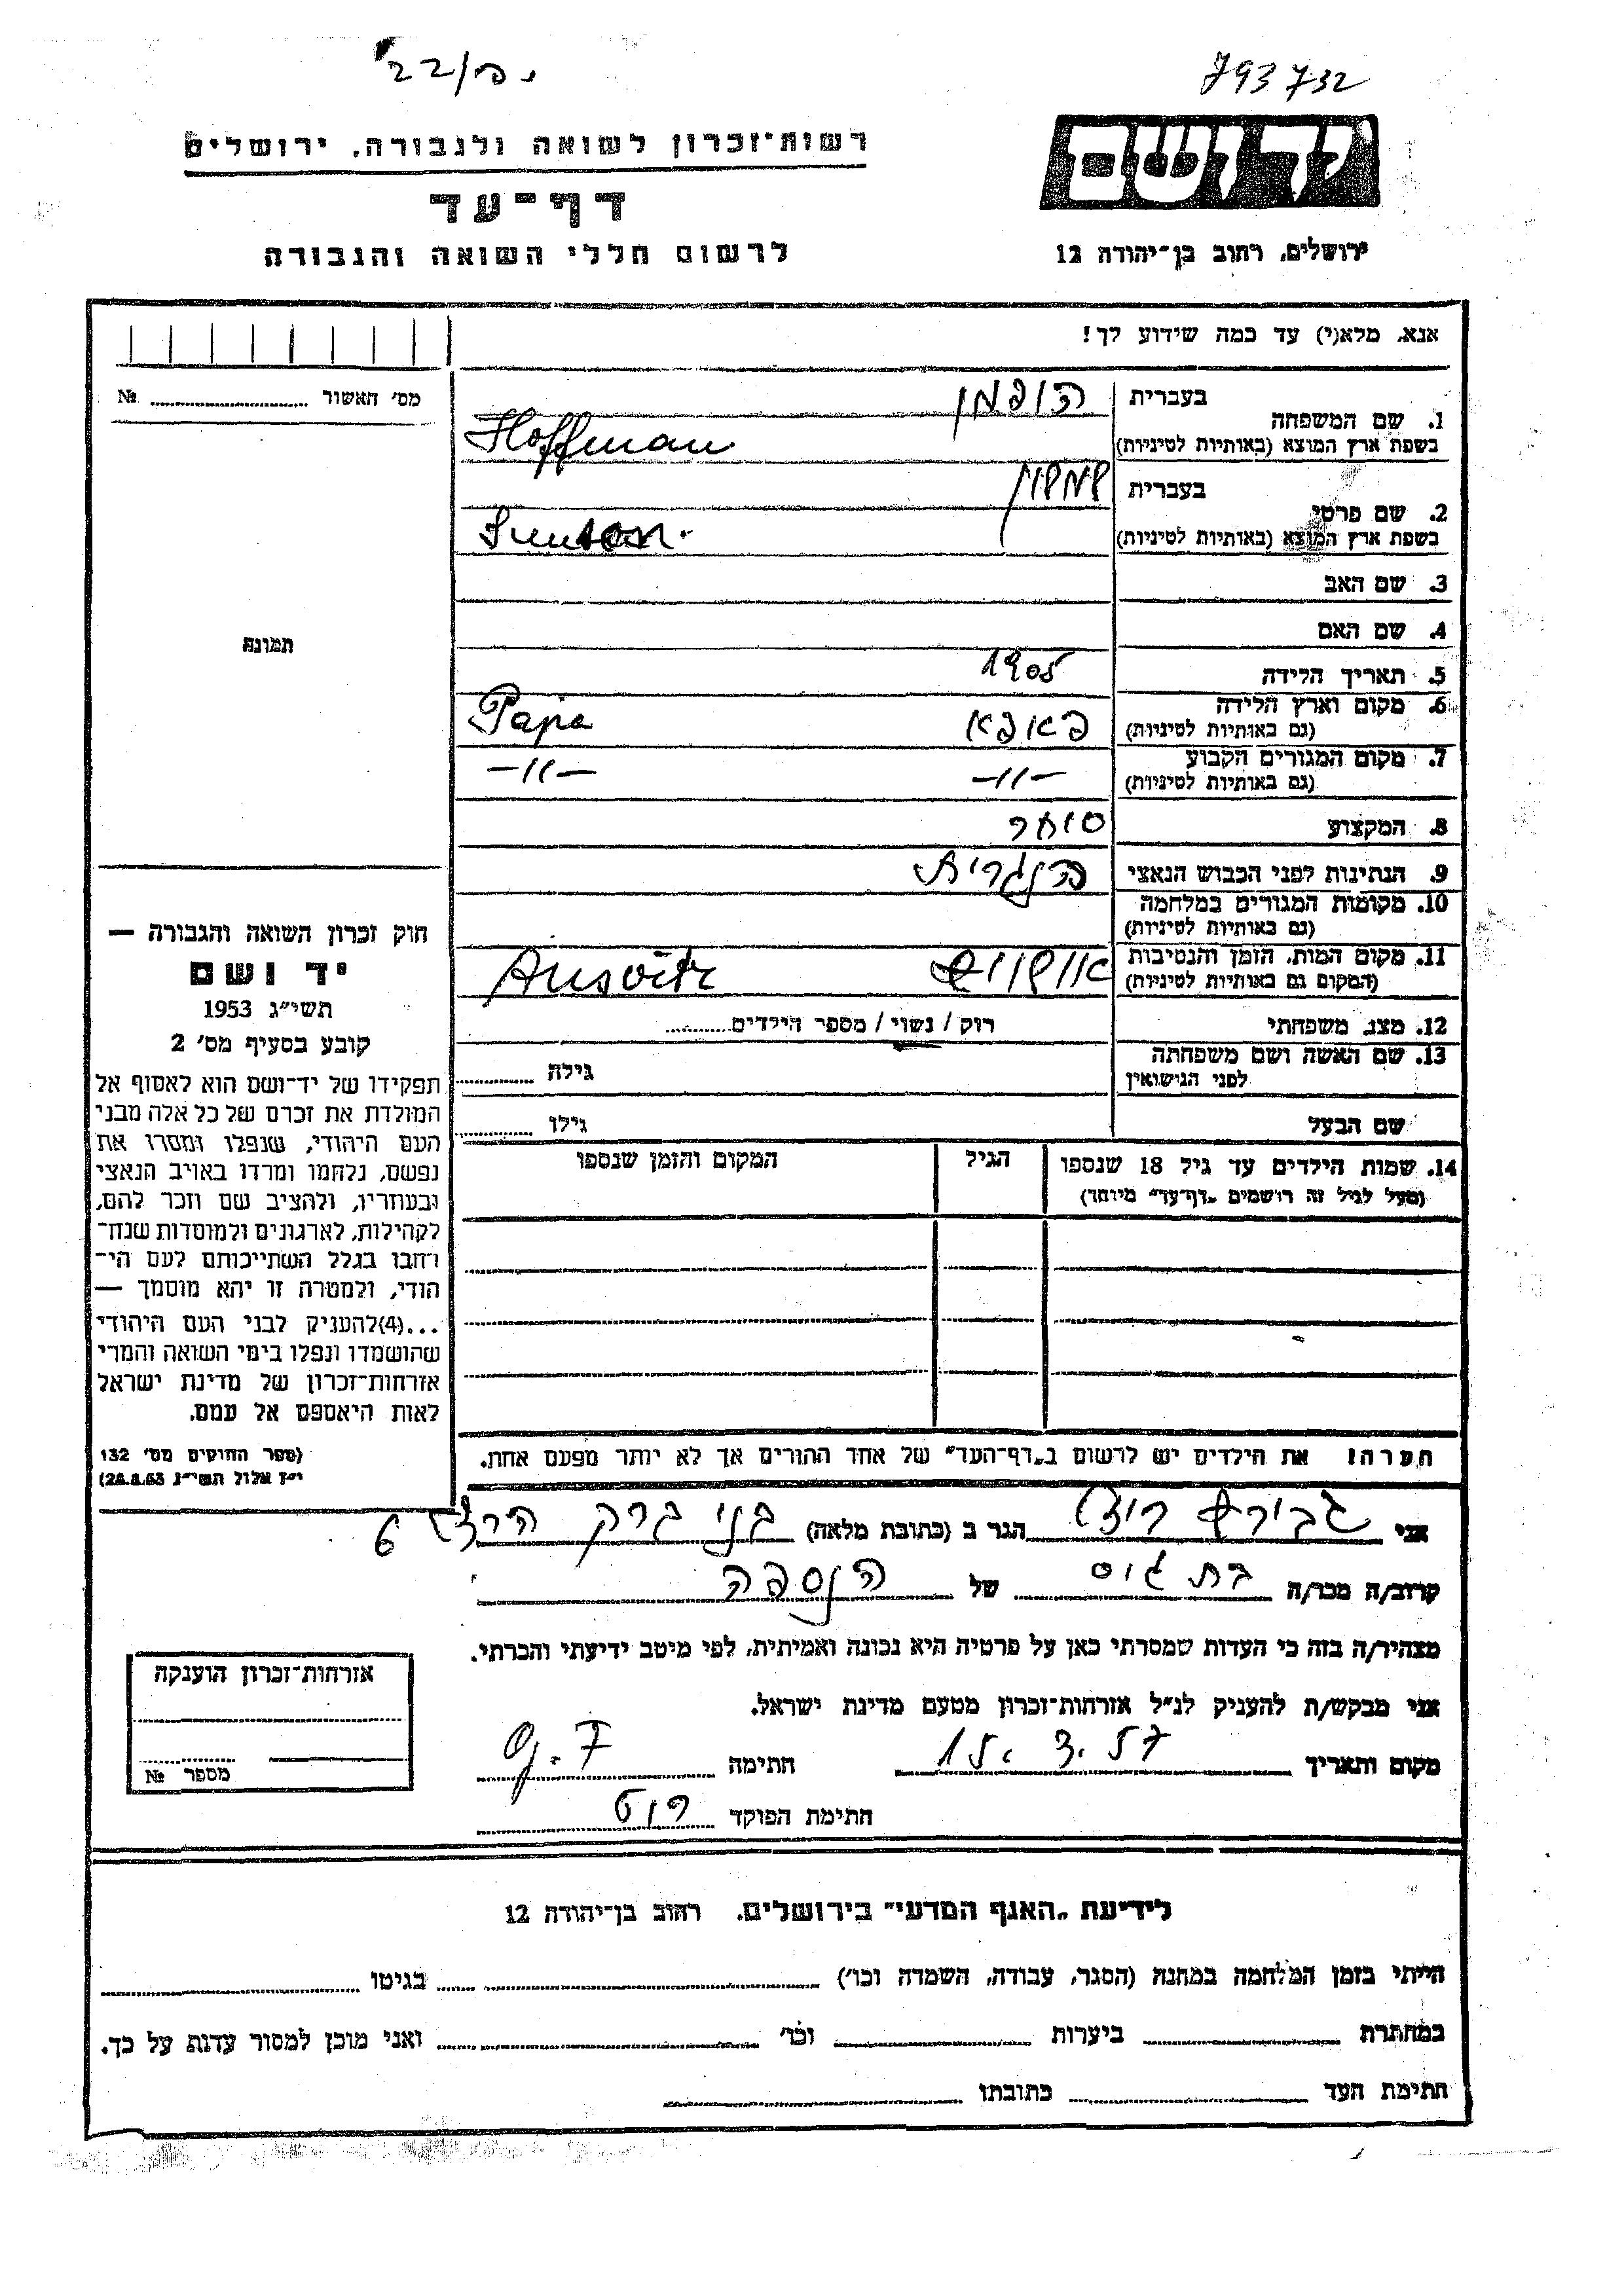 22/ס.
793732
ידושם
רשות־זכרון לשואה ולגבורה, ירושלים
דף־עד
לרשום חללי השואה והגבורה
ירושלים, רחוב בן־יהודה 12
אנא, מלא(י) עד כמה שידוע לך!
מס' האשור № ........
1. שם המשפחה
בעברית הופמן
בשפת ארץ המוצא (באותיות לטיניות) Hoffman
2. שם פרטי
בעברית שמשון
בשפת ארץ המוצא (באותיות לטיניות)
3. שם האב
4. שם האם
תמונה
5. תאריך הלידה 1905
6. מקום וארץ הלידה פאפא Papa
(גם באותיות לטיניות)
7. מקום המגורים הקבוע -״- -״-
(גם באותיות לטיניות)
8. המקצוע סוחר
9. הנתינות לפני הכבוש הנאצי הונגרית
10. מקומות המגורים במלחמה
(גם באותיות לטיניות)
11. מקום המות, הזמן והנסיבות אושויץ Ausvitz
(המקום גם באותיות לטיניות)
12. מצב משפחתי רוק / נשוי / מספר הילדים........
13. שם האשה ושם משפחתה
לפני הנישואין
גילה ........
שם הבעל גילו ........
14. שמות הילדים עד גיל 18 שנספו
(מעל לגיל זה רושמים „דף־עד" מיוחד)
הגיל
המקום והזמן שנספו
חוק זכרון השואה והגבורה —
יד ושם
תשי״ג 1953
קובע בסעיף מס' 2
תפקידו של יד־ושם הוא לאסוף אל
המולדת את זכרם של כל אלה מבני
העם היהודי, שנפלו ומסרו את
נפשם, נלחמו ומרדו באויב הנאצי
ובעוזריו, ולהציב שם וזכר להם,
לקהילות, לארגונים ולמוסדות שנח־
רבו בגלל השתייכותם לעם הי־
הודי, ולמטרה זו יהא מוסמך —
...(4)להעניק לבני העם היהודי
שהושמדו ונפלו בימי השואה והמרי
אזרחות־זכרון של מדינת ישראל
לאות היאספם אל עמם.
(ספר החוקים מס' 132
י״ז אלול תשי״ג 28.8.53)
הערה: את הילדים יש לרשום ב„דף־העד" של אחד ההורים אך לא יותר מפעם אחת.
אני הגר ב (כתובת מלאה) בני ברק הרצל 6
קרוב/ה מכר/ה בת גיס של הנספה
מצהיר/ה בזה כי העדות שמסרתי כאן על פרטיה היא נכונה ואמיתית, לפי מיטב ידיעתי והכרתי.
אני מבקש/ת להעניק לנ״ל אזרחות־זכרון מטעם מדינת ישראל.
מקום ותאריך 15. 3. 57 חתימה
חתימת הפוקד
אזרחות־זכרון הוענקה
מספר №
לידיעת „האגף המדעי" בירושלים, רחוב בן־יהודה 12
הייתי בזמן המלחמה במחנה (הסגר, עבודה, השמדה וכו') ........ בגיטו ........
במחתרת ........ ביערות ........ וכו' ........ ואני מוכן למסור עדות על כך.
חתימת העד ........ כתובתו ........